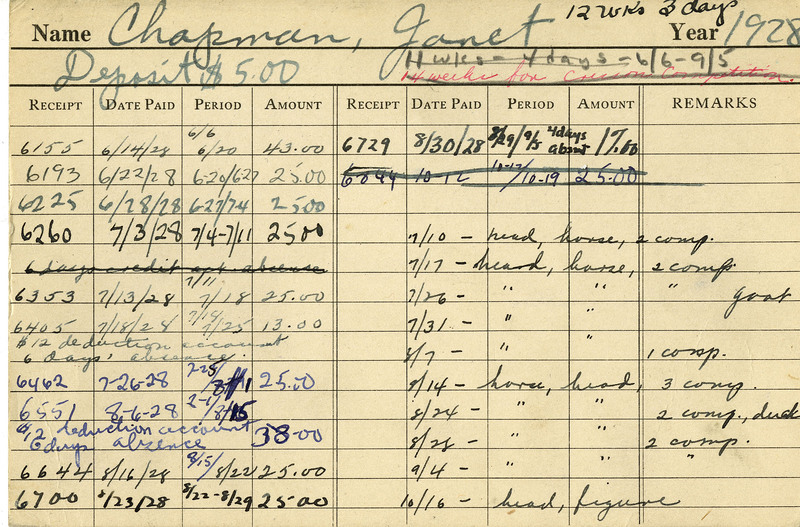 12 wks 3 days
Name Chapman, Janet Year 1928
11 wks - 4 days = 6/6-9/5
Deposit $5.00
14 weeks for Competition.
RECEIPT DATE PAID PERIOD AMOUNT RECEIPT DATE PAID PERIOD AMOUNT REMARKS
6155 6/14/28 6/6 6/20 43.00 6729 8/30/28 8/29/9/5 4 days absent 17.00
6193 6/22/28 6-20/627 25.00 10-12 10-12/10-19 25.00
6225 6/28/28 6-27/74 2500
6260 7/3/28 7/4-7/11 2500 7/10 - head, horse, 2 comp.
6 days credit act. absence 7/17 - head, horse, 2 comp
6353 7/13/28 7/11 7/18 25.00 7/26 - " " " goat
6405 7/18/28 7/18 7/25 13.00 7/31 - " "
$12 deduction account
6 days' absence. 8/7 - " " 1 comp.
6462 7-26-28 25.00 8/14 - horse, head, 3 comp.
6551 8-6-28 8/15 8/24 - " " 2 comp., duck
$12 deduction account 38-00
6 days absence 8/28 - " " 2 comp.
6644 8/16/28 8/15/8/22 25.00 9/4 - " " "
6700 8/23/28 8/22-8/29 25.00 10/16 - head, figure